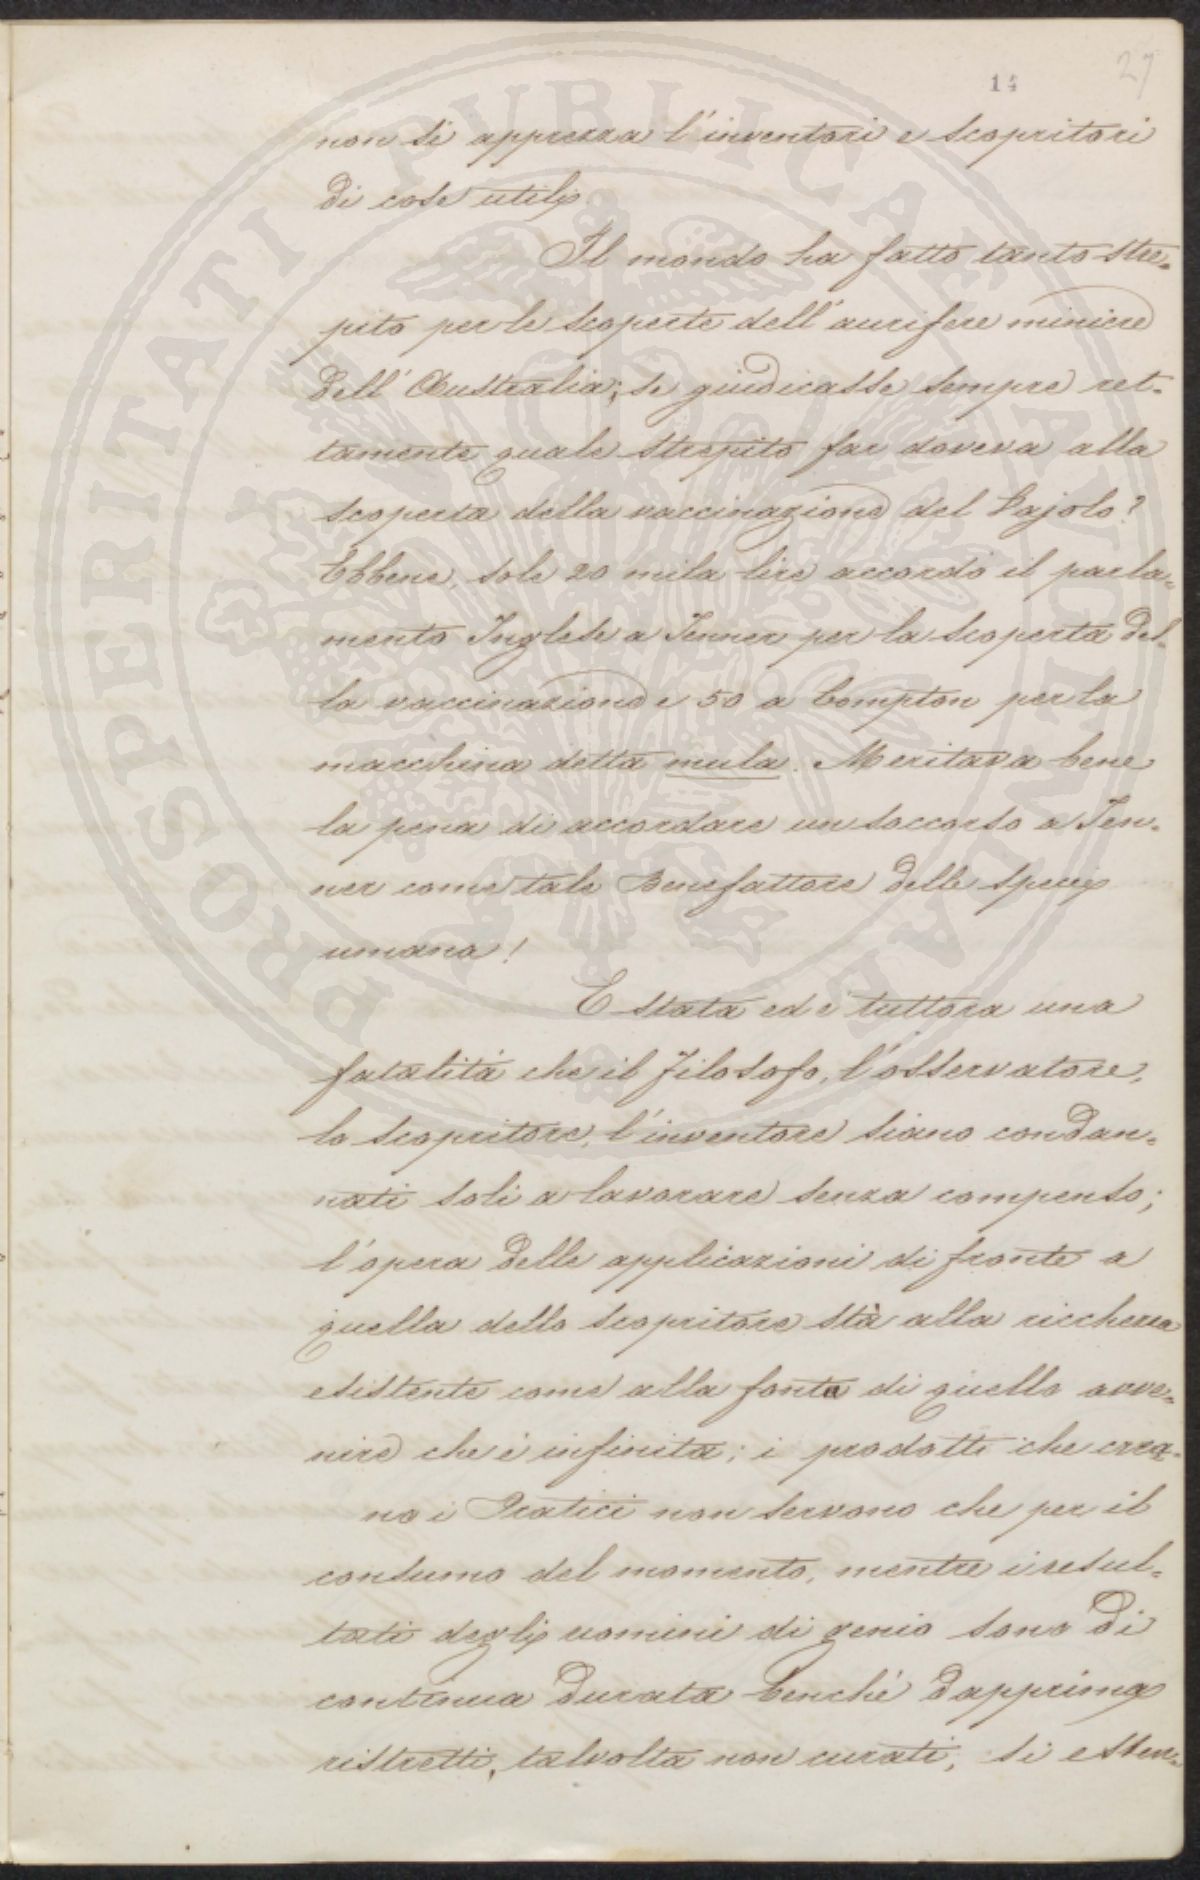 14 27
non si apprezza l'inventori e scopritori
di cose utili.
Il mondo ha fatto tanto stre-
pito per le scoperte dell'aurifere miniere
dell'Australia; se giudicasse sempre ret-
tamente quale strepito far doveva alla
scoperta della vaccinazione del Vajolo?
Ebbene, sole 20 mila lire accordò il parla-
mento Inglese a Jenner per la scoperta del-
la vaccinazione e 50 a Compton per la
macchina detta mula. Meritava bene
la pena di accordare un soccorso a Jen-
ner come tale Benefattore delle specie
umana!
E stata ed è tuttora una
fatalità che il Filosofo, l'osservatore,
lo scopritore, l'inventore siano condan-
nati soli a lavorare senza compenso;
l'opera delle applicazioni di fronte a
quella dello scopritore stà alla ricchezza
esistente come alla fonta di quello avve-
nire che è infinita; i prodotti che crea-
no i Pratici non servono che per il
consumo del momento, mentre i resul-
tati degli uomini di genio sono di
continua durata benchè dapprima
ristretti, talvolta non curati, si esten-
PROSPERITATI PUBLICAE AUGENDAE